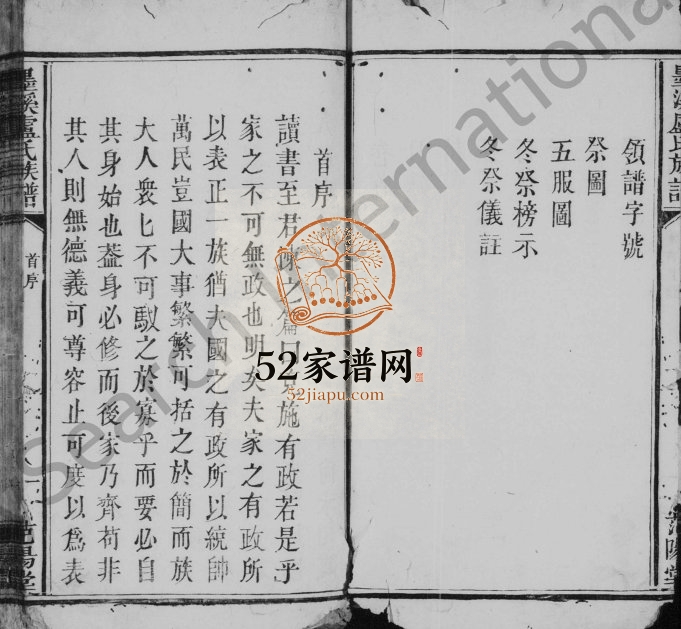 領譜字號
祭圖
五服圖
冬祭榜示
冬祭儀註
首序
讀書至君陳之篇曰克施有政若是乎
家之不可無政也明矣夫家之有政所
以表正一族猶夫國之有政所以統帥
萬民豈國大事繁繁可括之於簡而族
大人衆匕不可馭之於寡乎而要必自
其身始也葢身必修而後家乃齊苟非
其人則無德義可尊容止可度以爲表
墨溪盧氏族譜
首序
范陽堂
52家谱网
52jiapu.com
Search International